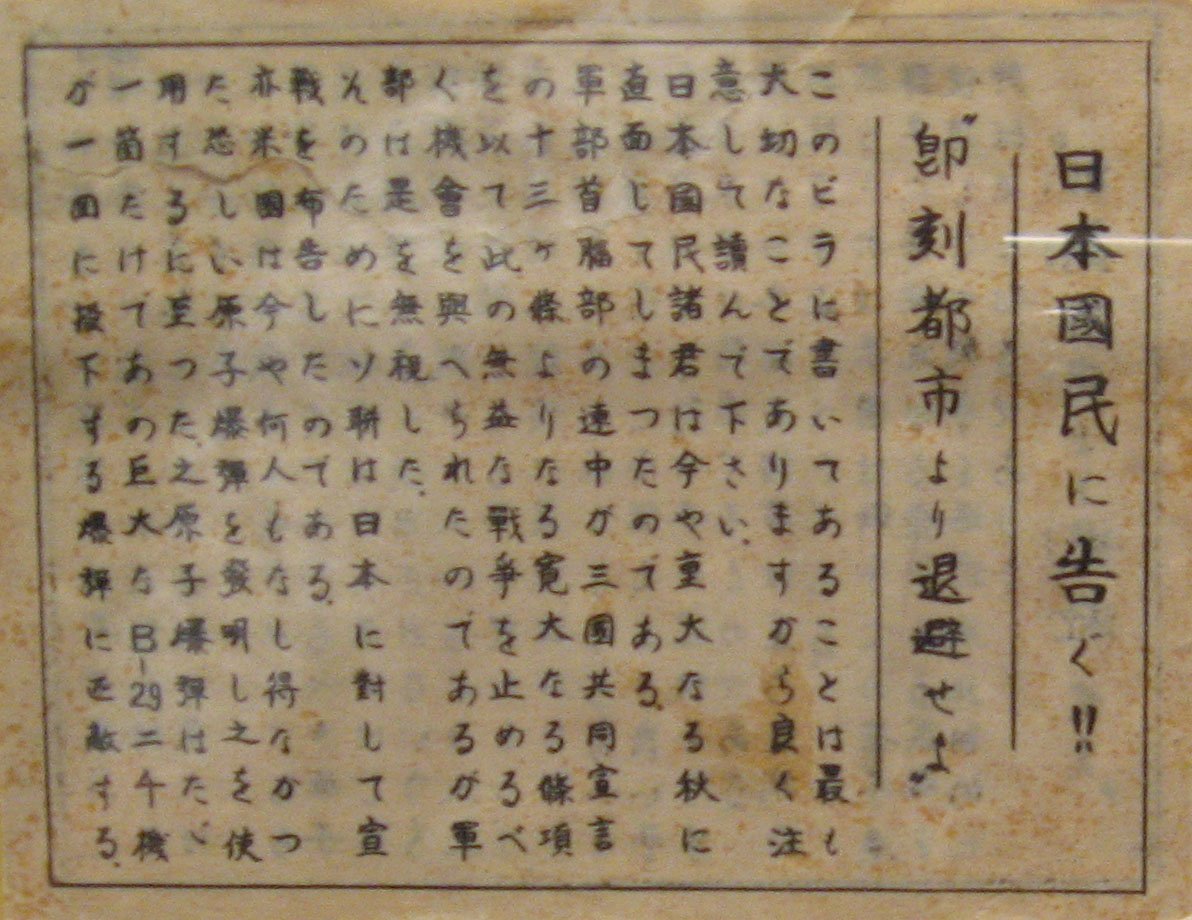 日本國民に告ぐ!!
"即刻都市より退避せよ"
このビラに書いてあることは最も
大切なことでありますから良く注
意して讀んで下さい、
日本國民諸君は今や重大なる秋に
直面してしまつたのである、
軍部首腦部の連中が三國共同宣言
の十三ヶ條よりなる寛大なる條項
を以て此の無益な戰爭を止めるべ
く機會を與へられたのであるが軍
部は是を無視した、
そのためにソ聯は日本に對して宣
戰を布告したのである、
亦米國は今や何人もなし得なかつ
た、恐しい原子爆彈を發明し之を使
用するに至つた、之原子爆彈はたゞ
一箇だけであの巨大なB-29二千機
が一回に投下する爆彈に匹敵する、